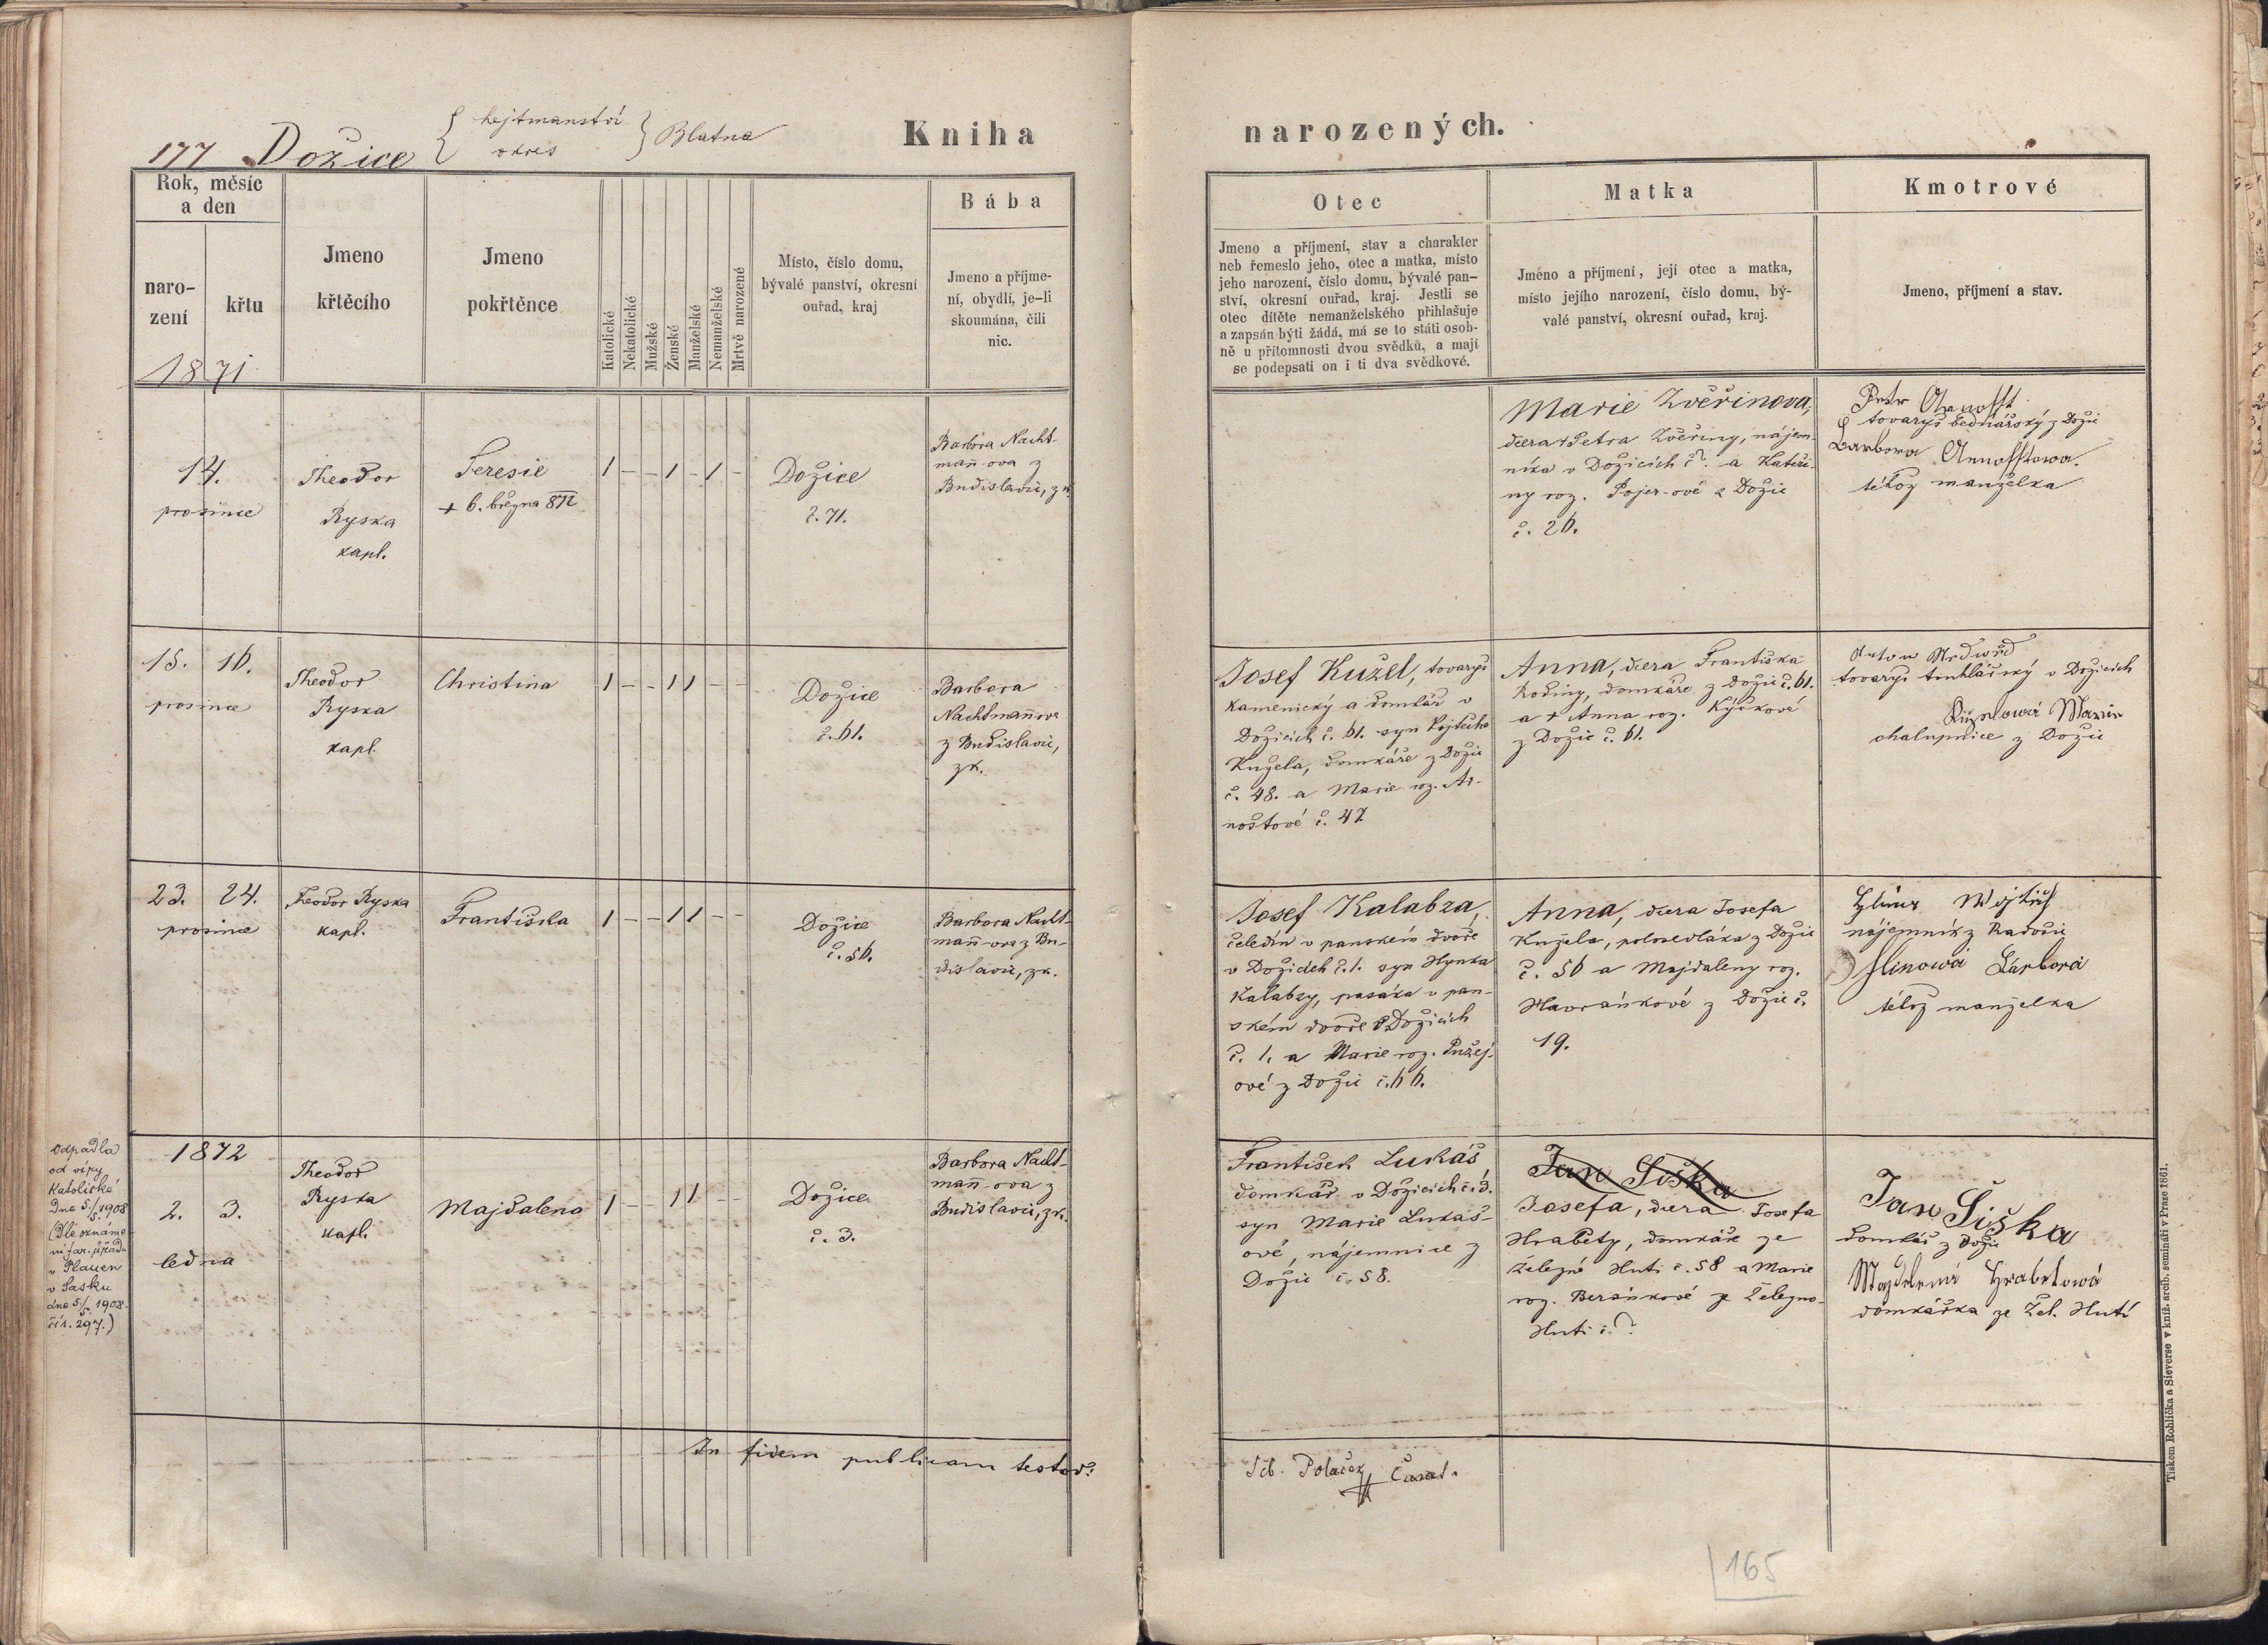 177 Dožice { hejtmanství
okres } Blatna
Kniha narozených.
Rok, měsíc
a den
naro-
zení
křtu
1871
Jmeno
křtěcího
Jmeno
pokřtěnce
Katolické
Nekatolické
Mužské
Ženské
Manželské
Nemanželské
Mrtvě narozené
Místo, číslo domu,
bývalé panství, okresní
ouřad, kraj
Bába
Jmeno a příjme-
ní, obydlí, je-li
skoumána, čili
nic.
Otec
Jmeno a příjmení, stav a charakter
neb řemeslo jeho, otec a matka, místo
jeho narození, číslo domu, bývalé pan-
ství, okresní ouřad, kraj. Jestli se
otec dítěte nemanželského přihlašuje
a zapsán býti žádá, má se to státi osob-
ně u přítomnosti dvou svědků, a mají
se podepsati on i ti dva svědkové.
Matka
Jméno a příjmení, její otec a matka,
místo jejího narození, číslo domu, bý-
valé panství, okresní ouřad, kraj.
Kmotrové
Jmeno, příjmení a stav.
14.
prosince
Theodor
Ryska
kapl.
Teresie
+ 6. března 872
1 - - 1 - 1 -
Dožice
č. 71.
Barbora Nacht-
mañ-ova z
Budislavic, zk.
Marie Zvěřinova,
dcera + Petra Zvěřiny, nájem-
níka v Dožicích č?. a Kateři-
ny roz. Pojer-ové z Dožic
č. 26.
Petr
tovaryš bednářský z Dožic
Barbora
téhož manželka
15. 16.
prosince
Theodor
Ryska
kapl.
Christina
1 - - 1 1 - -
Dožice
č. 61.
Barbora
Nachtmañova
z Budislavic,
zk.
Josef Kužel, tovaryš
kamenický a domkář v
Dožicích č. 61. syn Vojtěcha
Kužela, domkáře z Dožic
č. 48. a Marie roz. Ar-
noštové č. 47
Anna, dcera Františka
Rodiny, domkáře z Dožic č. 61.
a + Anna roz. Kýčkové
z Dožic č. 61.
Anton
tovaryš truhlářský v Dožicích
Marie
chalupnice z Dožic
23. 24.
prosince
Theodor Ryska
kapl.
Františka
1 - - 1 1 - -
Dožice
č. 56.
Barbora Nacht-
mañ-ova z Bu-
dislavic, zk.
Josef Kalabza,
čeledín v panském dvoře
v Dožicích č. 1. syn Hynka
Kalabzy, pasáka v pan-
ském dvoře v Dožicích
č. 1. a Marie roz. Pužej-
ové z Dožic č. 66.
Anna, dcera Josefa
Kužela, polosedláka z Dožic
č. 56 a Majdaleny roz.
Havránkové z Dožic č.
19.
Wojtěch
nájemník z Radošic
Hlinowá Barbora
téhož manželka
Odpadla
od víry
Katolické
dne 5./5. 1908
(Dle oznáme-
ní far. úřadu
v Plauen
v Sasku
dne 5./5. 1908.
čís. 297.)
1872
2. 3.
ledna
Theodor
Ryska
kapl.
Majdalena
1 - - 1 1 - -
Dožice
č. 3.
Barbora Nacht-
mañ-ova z
Budislavic, zk.
František Lukáš
domkář v Dožicích č. 3.
syn Marie Lukáš-
ové, nájemnice z
Dožic č. 58.
Jan Šiška
Josefa, dcera Josefa
Hraběty, domkáře ze
železné Huti č. 58 a Marie
roz. Beránkové ze Železno-
Huti č.?
Jan Šiška
domkář z Dožic
Majdlena Hrabetowá
domkářka ze Žel. Hutí
In fidem publicam testor:
Polaček
165
Tiskem Rohlíčka a Sieverse v kníž. arcib. semináři v Praze 1861.